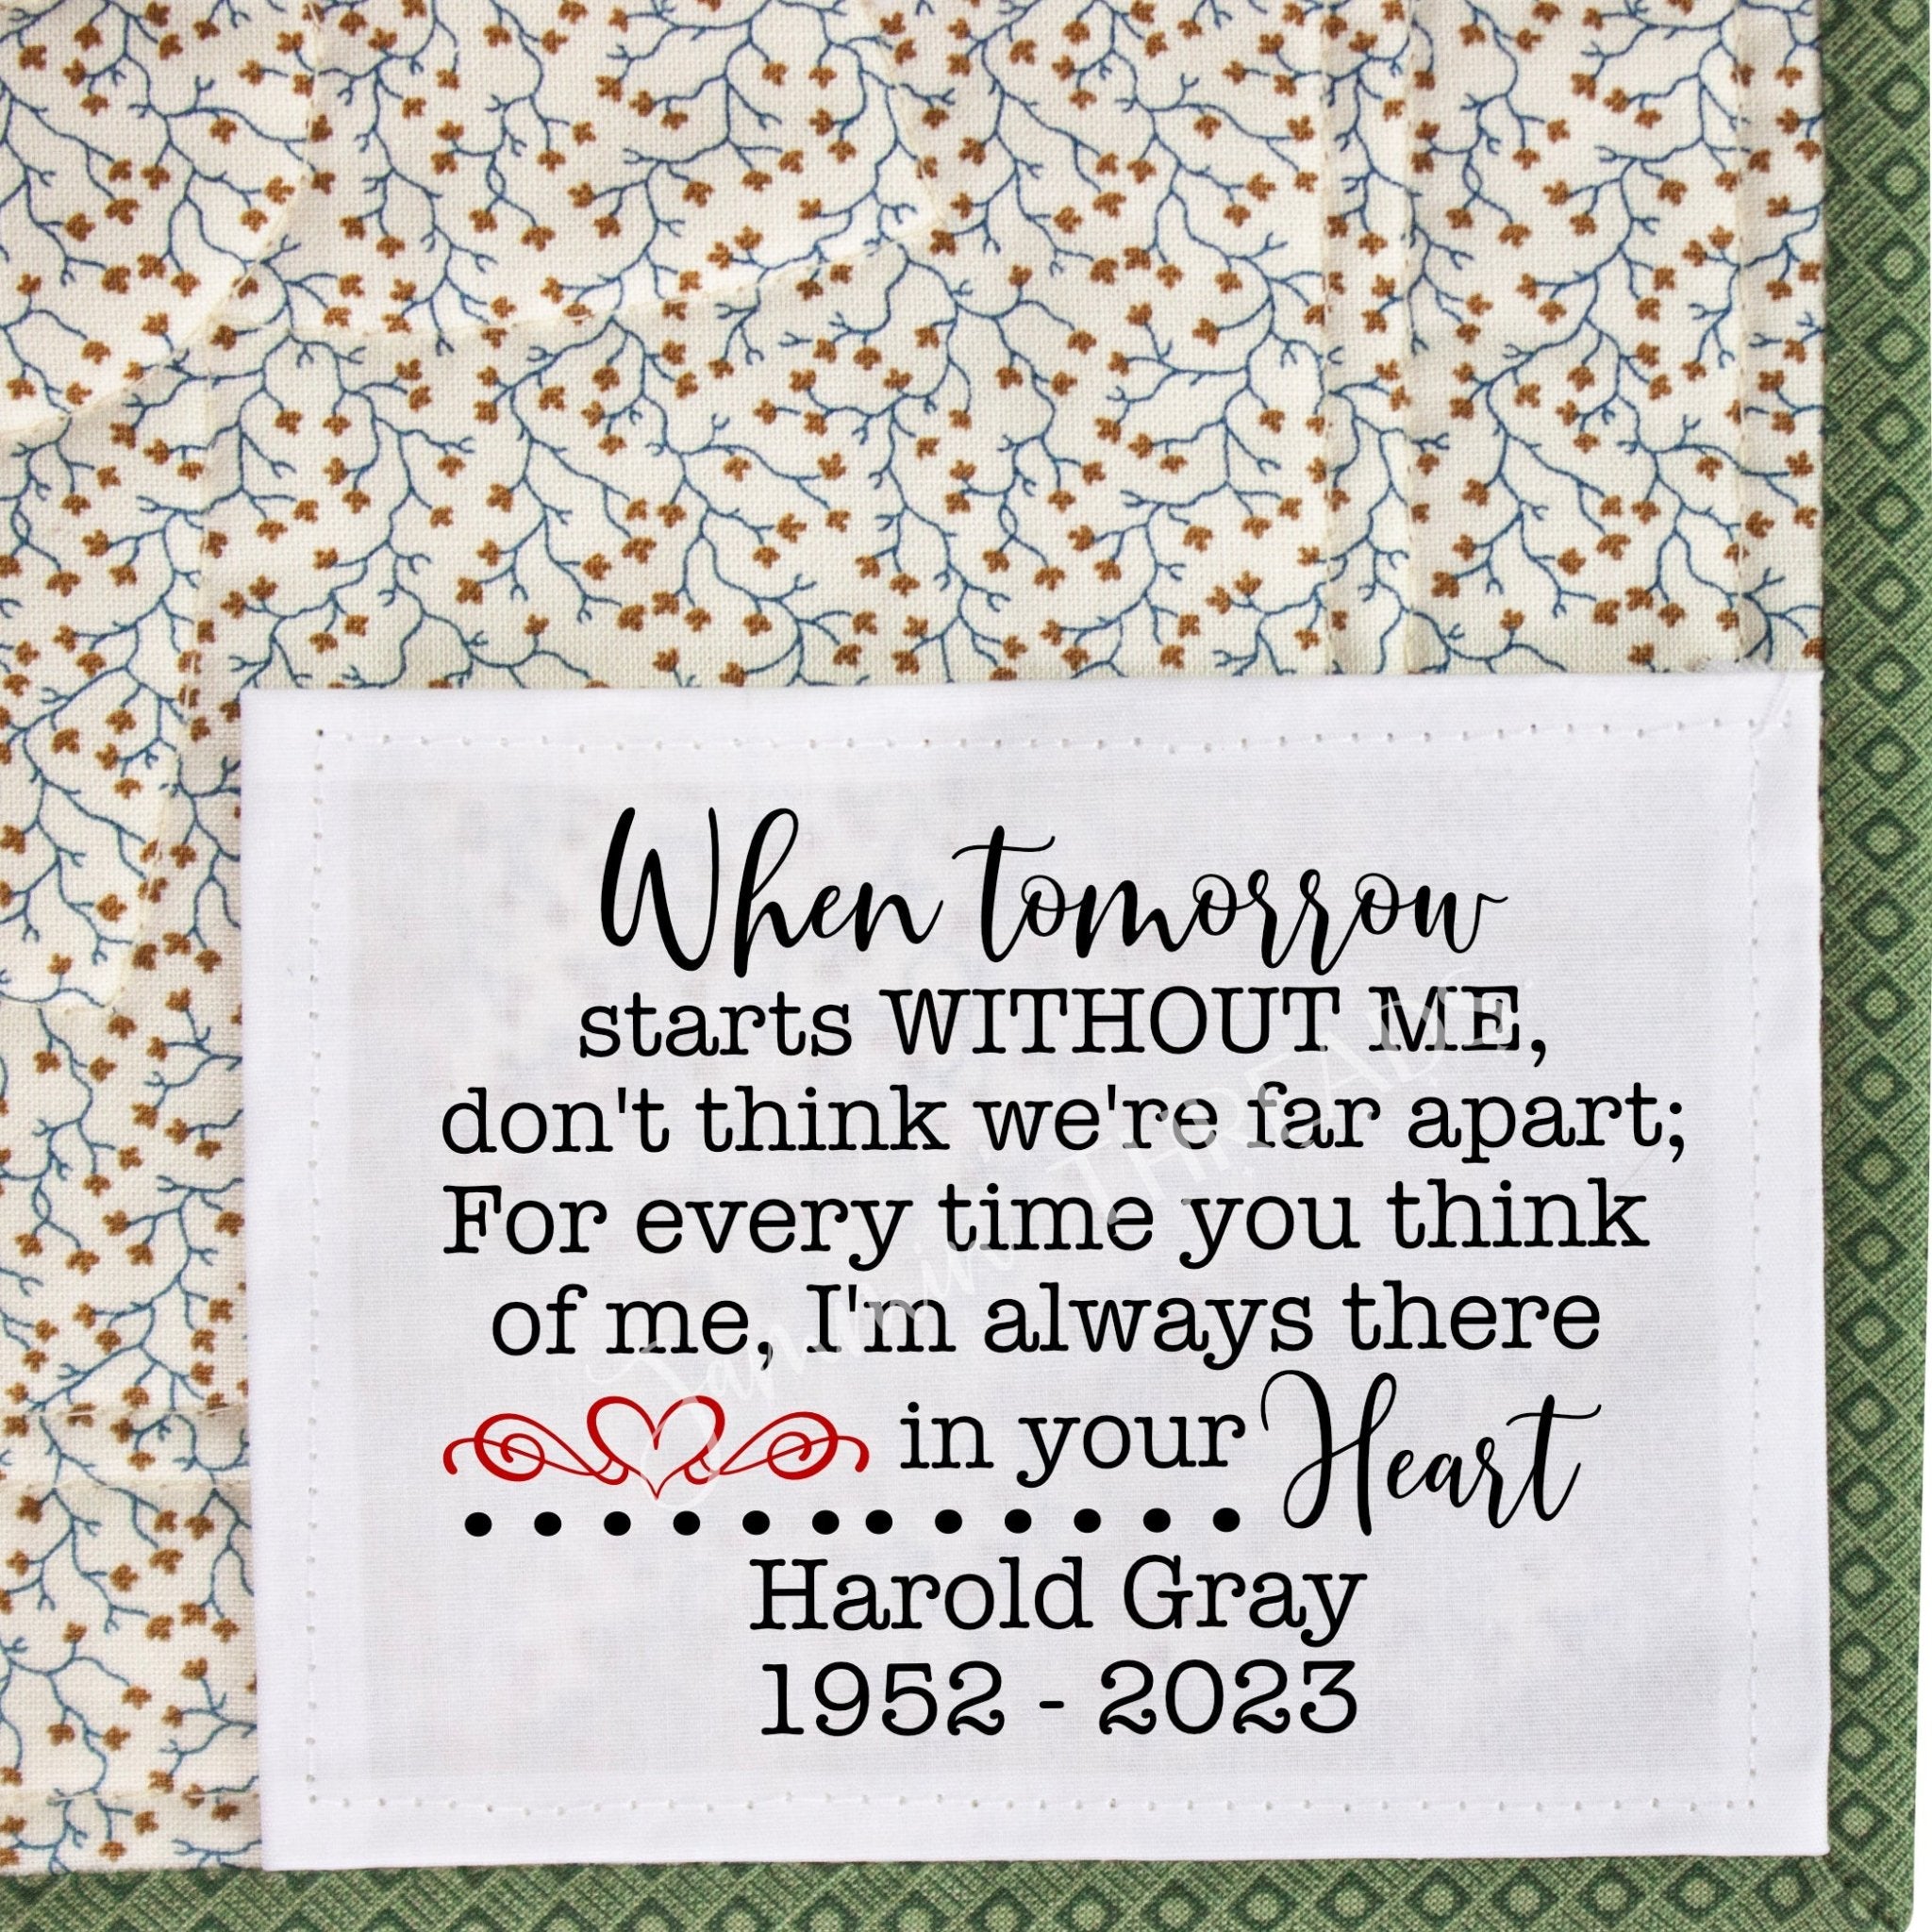 When tomorrow
starts WITHOUT ME,
don't think we're far apart;
For every time you think
of me, I'm always there
in your Heart
Harold Gray
1952 - 2023
Jammin THREADS